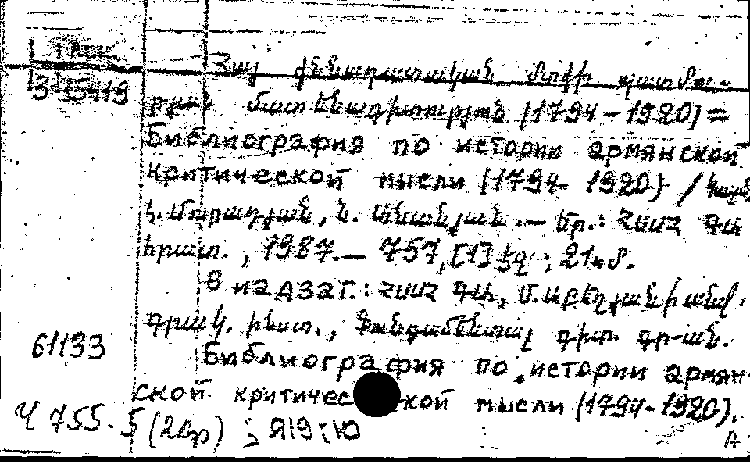 Հայ քննադատական մտքի պատմու-
թյան մատենագիտություն (1794-1920) =
Библиография по истории армянской
критической мысли (1794-1920) / Կազմ.
Հ. Մուրադյան, Ն. Անանյան. — Եր.: ՀՍՍՀ ԳԱ
հրատ., 1987. — 757, [1] էջ ; 21սմ.
В надзаг.: ՀՍՍՀ ԳԱ, Մ. Աբեղյանի անվ.
գրակ. ինստ., Ֆունդամենտալ գիտ. գր-ան.
61133
Библиография по истории армян-
ской критической мысли (1794-1920).
Ч 755.5 (2Ар) ; Я19:Ю
A